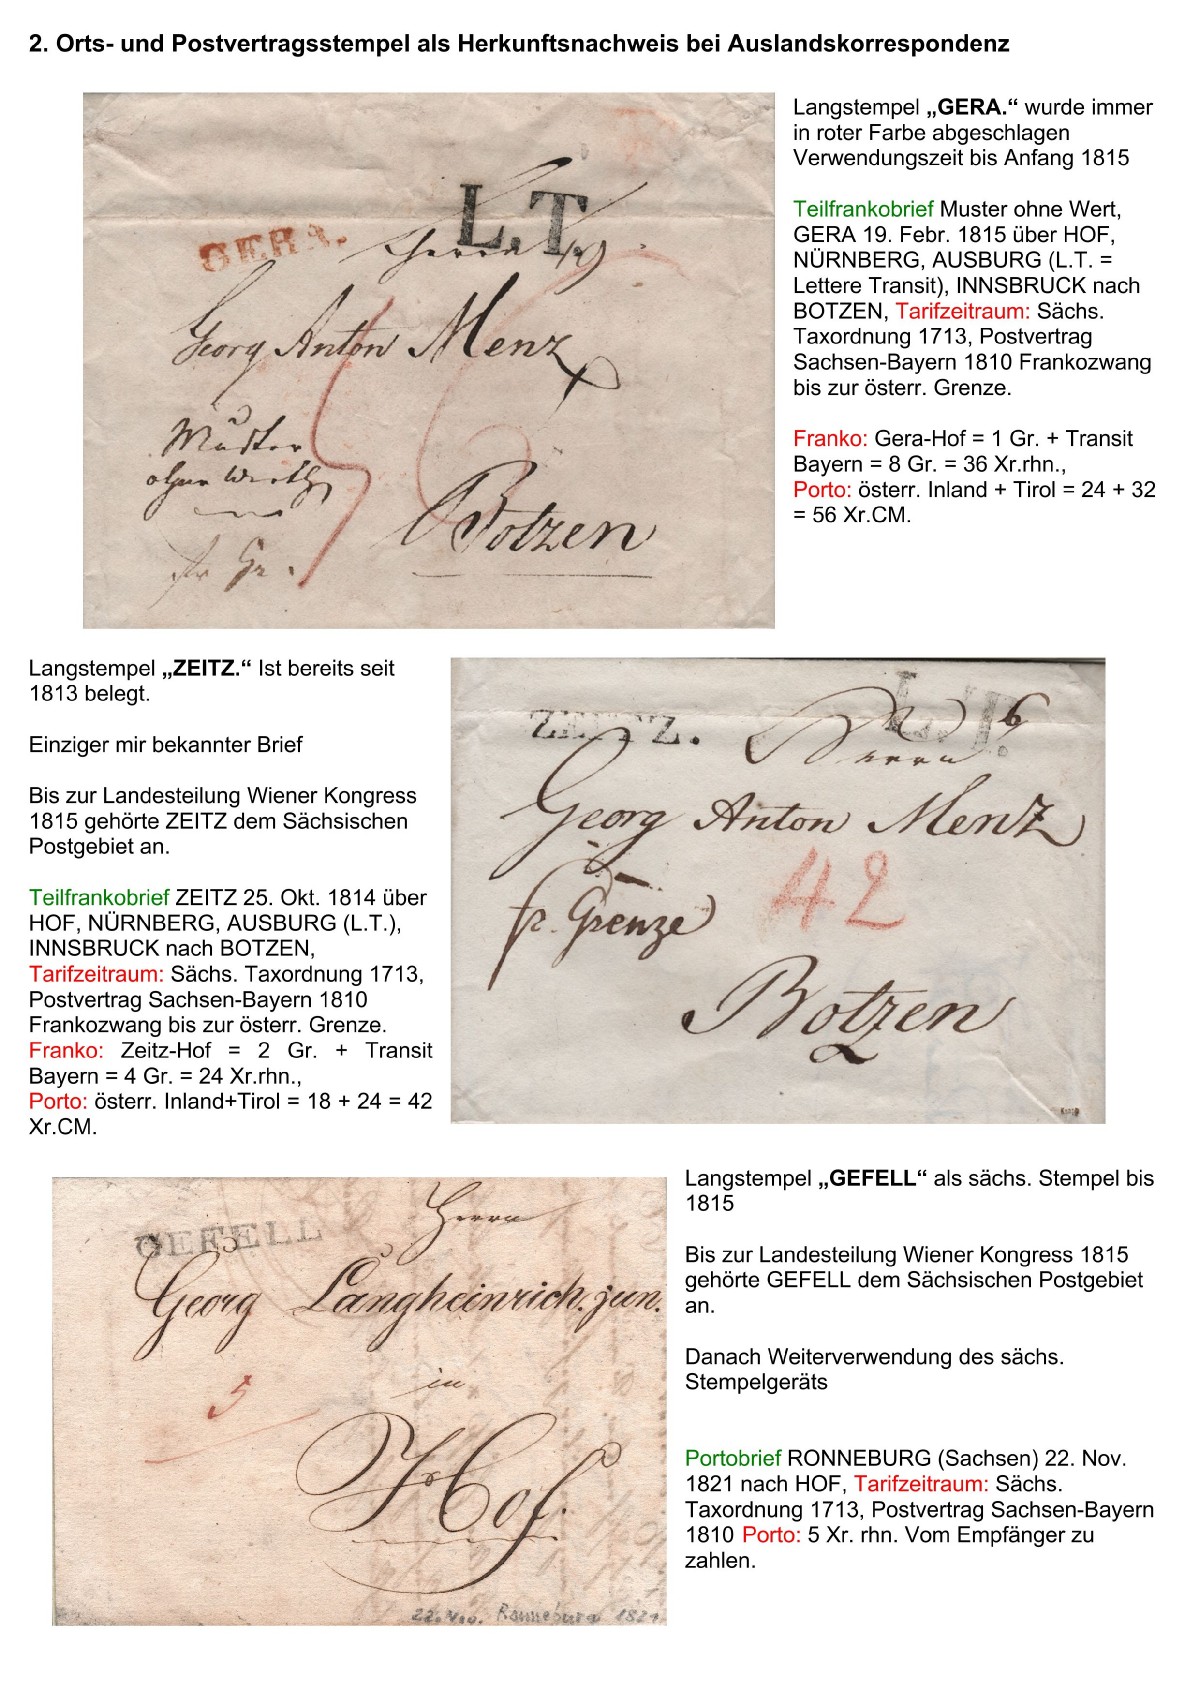 2. Orts- und Postvertragsstempel als Herkunftsnachweis bei Auslandskorrespondenz
GERA.
L.T.
Herrn
Georg Anton Menz
Muster
ohne Werth
56
Botzen
fr Gr.
Langstempel „GERA.“ wurde immer
in roter Farbe abgeschlagen
Verwendungszeit bis Anfang 1815
Teilfrankobrief Muster ohne Wert,
GERA 19. Febr. 1815 über HOF,
NÜRNBERG, AUSBURG (L.T. =
Lettere Transit), INNSBRUCK nach
BOTZEN, Tarifzeitraum: Sächs.
Taxordnung 1713, Postvertrag
Sachsen-Bayern 1810 Frankozwang
bis zur österr. Grenze.
Franko: Gera-Hof = 1 Gr. + Transit
Bayern = 8 Gr. = 36 Xr.rhn.,
Porto: österr. Inland + Tirol = 24 + 32
= 56 Xr.CM.
Langstempel „ZEITZ.“ Ist bereits seit
1813 belegt.
Einziger mir bekannter Brief
Bis zur Landesteilung Wiener Kongress
1815 gehörte ZEITZ dem Sächsischen
Postgebiet an.
Teilfrankobrief ZEITZ 25. Okt. 1814 über
HOF, NÜRNBERG, AUSBURG (L.T.),
INNSBRUCK nach BOTZEN,
Tarifzeitraum: Sächs. Taxordnung 1713,
Postvertrag Sachsen-Bayern 1810
Frankozwang bis zur österr. Grenze.
Franko: Zeitz-Hof = 2 Gr. + Transit
Bayern = 4 Gr. = 24 Xr.rhn.,
Porto: österr. Inland+Tirol = 18 + 24 = 42
Xr.CM.
ZEITZ.
L.T.
6
Herrn
Georg Anton Menz
42
fr. Grenze
Botzen
GEFELL
Herrn
Georg Langheinrich. jun.
5
in
Hof.
22. Nov. Ronneburg 1821
Langstempel „GEFELL“ als sächs. Stempel bis
1815
Bis zur Landesteilung Wiener Kongress 1815
gehörte GEFELL dem Sächsischen Postgebiet
an.
Danach Weiterverwendung des sächs.
Stempelgeräts
Portobrief RONNEBURG (Sachsen) 22. Nov.
1821 nach HOF, Tarifzeitraum: Sächs.
Taxordnung 1713, Postvertrag Sachsen-Bayern
1810 Porto: 5 Xr. rhn. Vom Empfänger zu
zahlen.